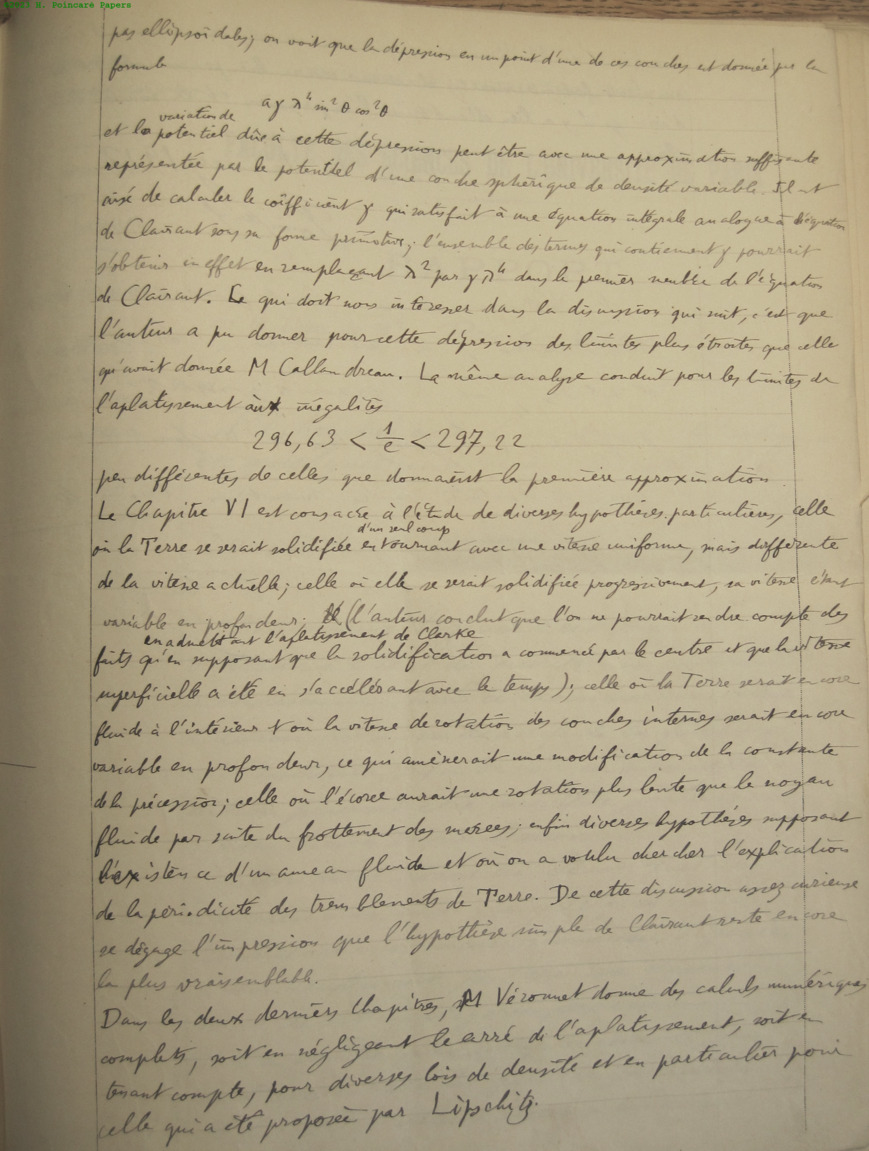 H. Poincaré Papers
pas ellipsoïdales; on voit que la dépression en un point d'une de ces couches est donnée par la
formule
aγ λ⁴ sin² θ cos² θ
variation de
et la potentiel dûe à cette dépression peut être avec une approximation suffisante
représentée par le potentiel d'une couche sphérique de densité variable. Il est
aisé de calculer le coëfficient γ qui satisfait à une équation intégrale analogue à l'équation
de Clairaut sous sa forme primitive; l'ensemble des termes qui contiennent γ pourrait
s'obtenir in effet en remplaçant λ² par γ λ⁴ dans le premier membre de l'équation
de Clairaut. Ce qui doit nous intéresser dans la discussion qui suit, c'est que
l'auteur a pu donner pour cette dépression des limites plus étroites que celle
qu'avait donnée M Callandreau. La même analyse conduit pour les limites de
l'aplatissement aux inégalités
296,63 < 1/e < 297,22
peu différentes de celles que donnaient la première approximation
Le Chapitre VI est consacré à l'étude de diverses hypothèses particulières, celle
d'un seul coup
où la Terre se serait solidifiée en tournant avec une vitesse uniforme, mais différente
de la vitesse actuelle; celle où elle se serait solidifiée progressivement, sa vitesse étant
variable en profondeur; (l'auteur conclut que l'on ne pourrait rendre compte des
en admettant l'aplatissement de Clarke
faits qu'en supposant que la solidification a commencé par le centre et que la vitesse
superficielle a été en s'accélérant avec le temps); celle où la Terre serait encore
fluide à l'intérieur et où la vitesse de rotation des couches internes serait encore
variable en profondeur, ce qui amènerait une modification de la constante
de la précession; celle où l'écorce aurait une rotation plus lente que le noyau
fluide par suite du frottement des marees; enfin diverses hypothèses supposant
l'existence d'un anneau fluide et où on a voulu chercher l'explication
de la périodicité des tremblements de Terre. De cette discussion assez curieuse
se dégage l'impression que l'hypothèse simple de Clairaut reste encore
la plus vraisemblable.
Dans les deux derniers Chapitres, M Véronnet donne des calculs numériques
complets, soit en négligeant le carré de l'aplatissement, soit en
tenant compte, pour diverses lois de densité et en particulier pour
celle qui a été proposée par Lipschitz.